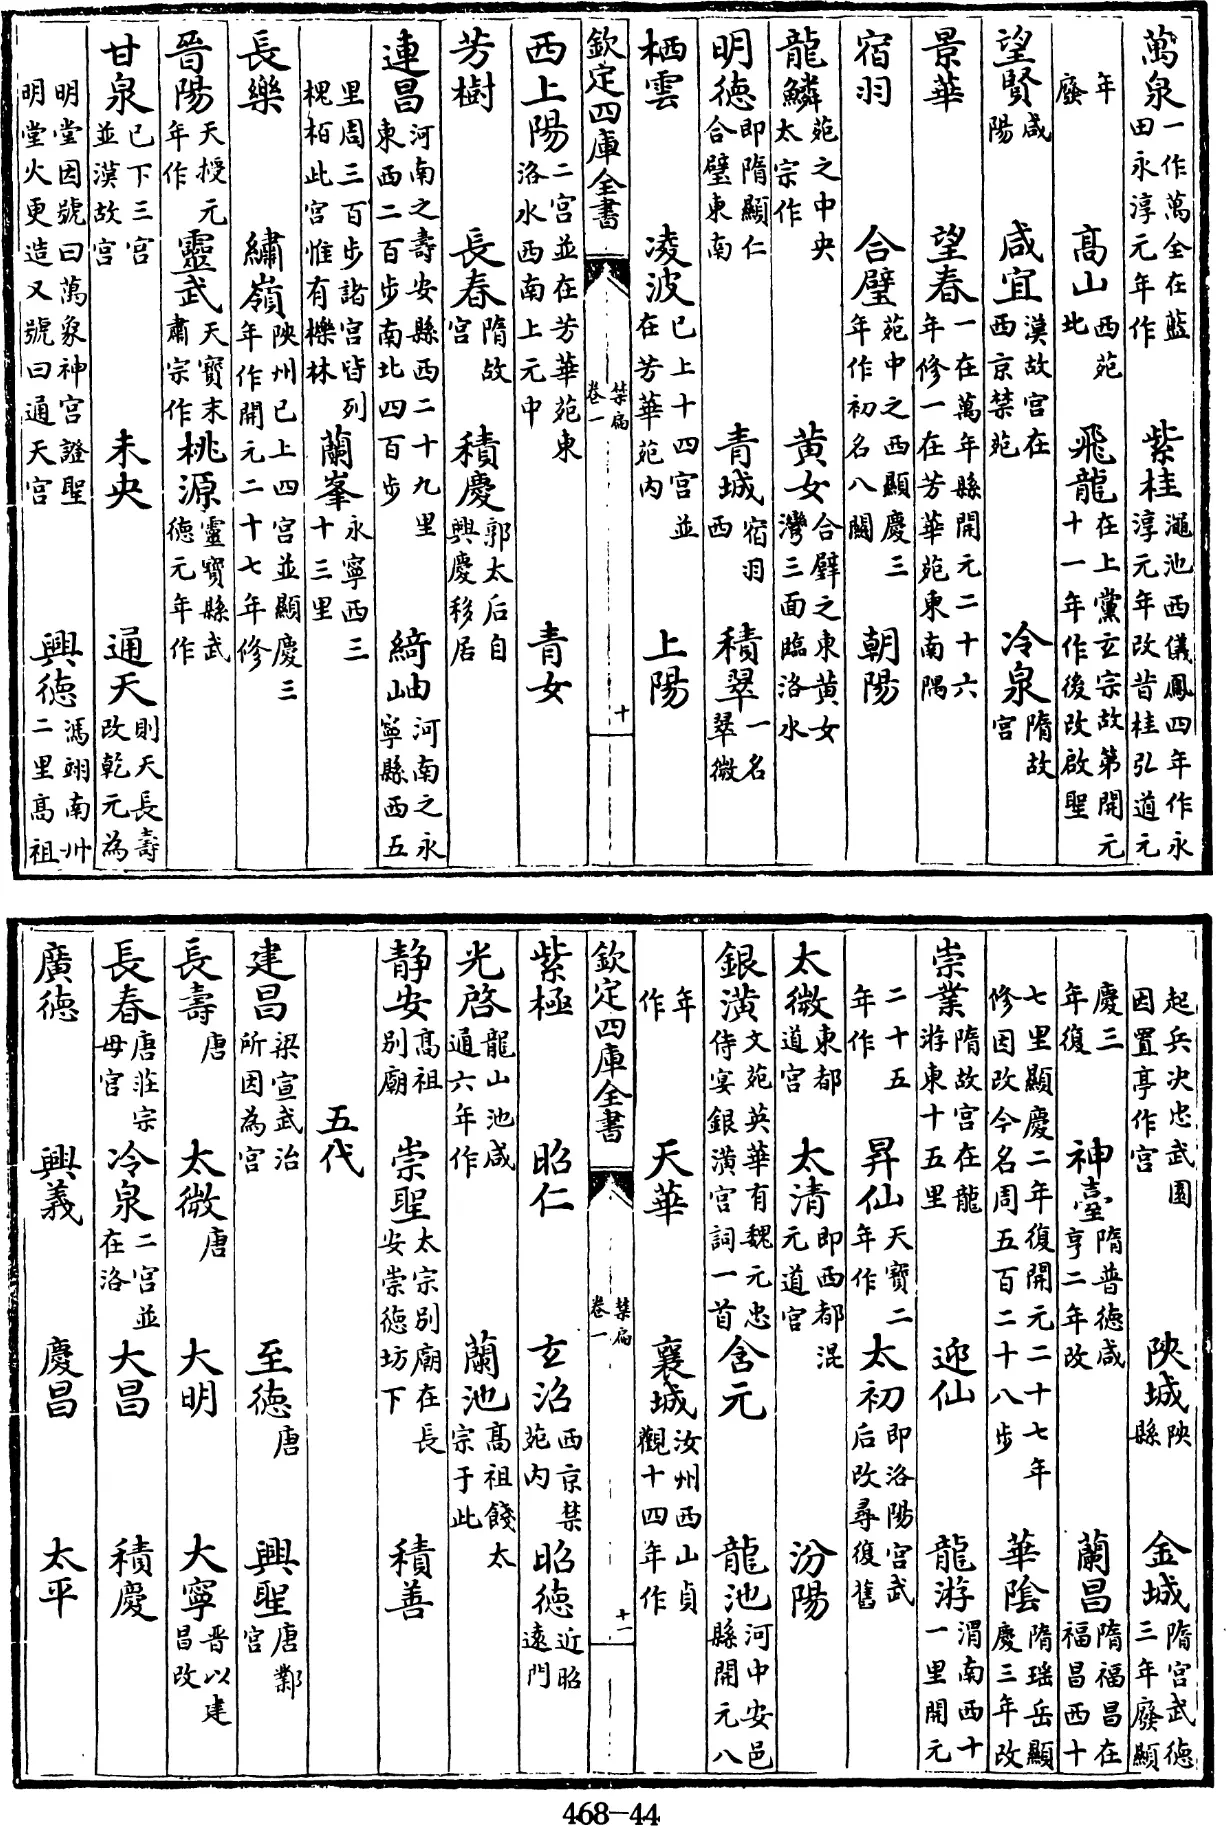 萬泉一作萬全在藍田永淳元年作 紫桂澠池西儀鳳四年作永淳元年改昔桂弘道元
年廢 高山西苑北 飛龍在上黨玄宗故第開元十一年作後改啟聖
望賢咸陽 咸宜漢故宫在西京禁苑 冷泉隋故宫
景華 望春一在萬年縣開元二十六年修一在芳華苑東南隅
宿羽 合璧苑中之西顯慶三年作初名八關 朝陽
龍鱗苑之中央太宗作 黄女合璧之東黄女灣三面臨洛水
明德即隋顯仁合璧東南 青城宿羽西 積翠一名翠微
栖雲 凌波已上十四宫並在芳華苑内 上陽
欽定四庫全書 禁扁卷一 十
西上陽二宫並在芳華苑東洛水西南上元中 青女
芳樹 長春隋故宫 積慶郭太后自興慶移居
連昌河南之壽安縣西二十九里東西二百步南北四百步 綺岫河南之永寧縣西五
里周三百步諸宫皆列槐栢此宫惟有櫟林 蘭峯永寧西三十三里
長樂 繡嶺陜州已上四宫並顯慶三年作開元二十七年修
晉陽天授元年作 靈武天寳末肅宗作 桃源靈寳縣武德元年作
甘泉已下三宫並漢故宫 未央 通天則天長壽改乾元為
明堂因號曰萬象神宫證聖明堂火更造又號曰通天宫 興德馮翊南卅二里高祖
起兵次忠武園因置亭作宫 陜城陜縣 金城隋宫武德三年廢顯
慶三年復 神臺隋普德咸亨二年改 蘭昌隋福昌在福昌西十
七里顯慶二年復開元二十七年修因改今名周五百二十八步 華陰隋瑶岳顯慶三年改
崇業隋故宫在龍游東十五里 迎仙 龍游渭南西十一里開元
二十五年作 昇仙天寳二年作 太初即洛陽宫武后改尋復舊
太微東都道宫 太清即西都混元道宫 汾陽
銀潢文苑英華有魏元忠侍宴銀潢宫詞一首 含元 龍池河中安邑縣開元八
年作 天華 襄城汝州西山貞觀十四年作
欽定四庫全書 禁扁卷一 十一
紫極 昭仁 玄沼西京禁苑内 昭德近昭遠門
光啓龍山池咸通六年作 蘭池高祖餞太宗于此
静安高祖别廟 崇聖太宗别廟在長安崇德坊下 積善
五代
建昌梁宣武治所因為宫 至德唐 興聖唐鄴宫
長壽唐 太微唐 大明 大寧晉以建昌改
長春唐莊宗母宫 冷泉二宫並在洛 大昌 積慶
廣德 興義 慶昌 太平
468—44